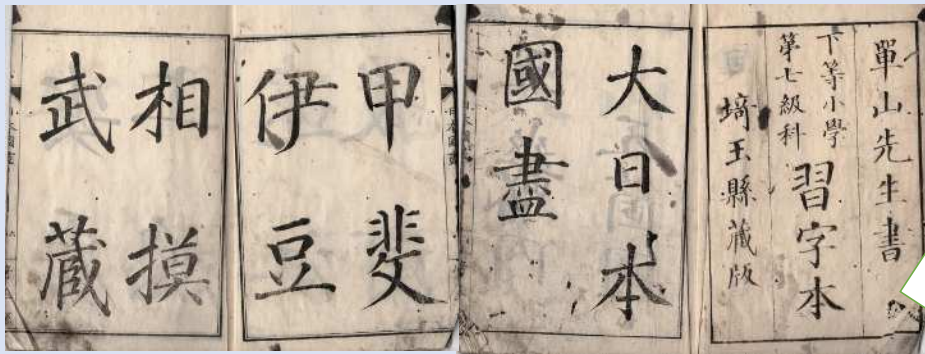 單山先生書
下等小學
第七級科
習字本
埼玉縣蔵版
大日本
國盡
甲斐
伊豆
相摸
武蔵